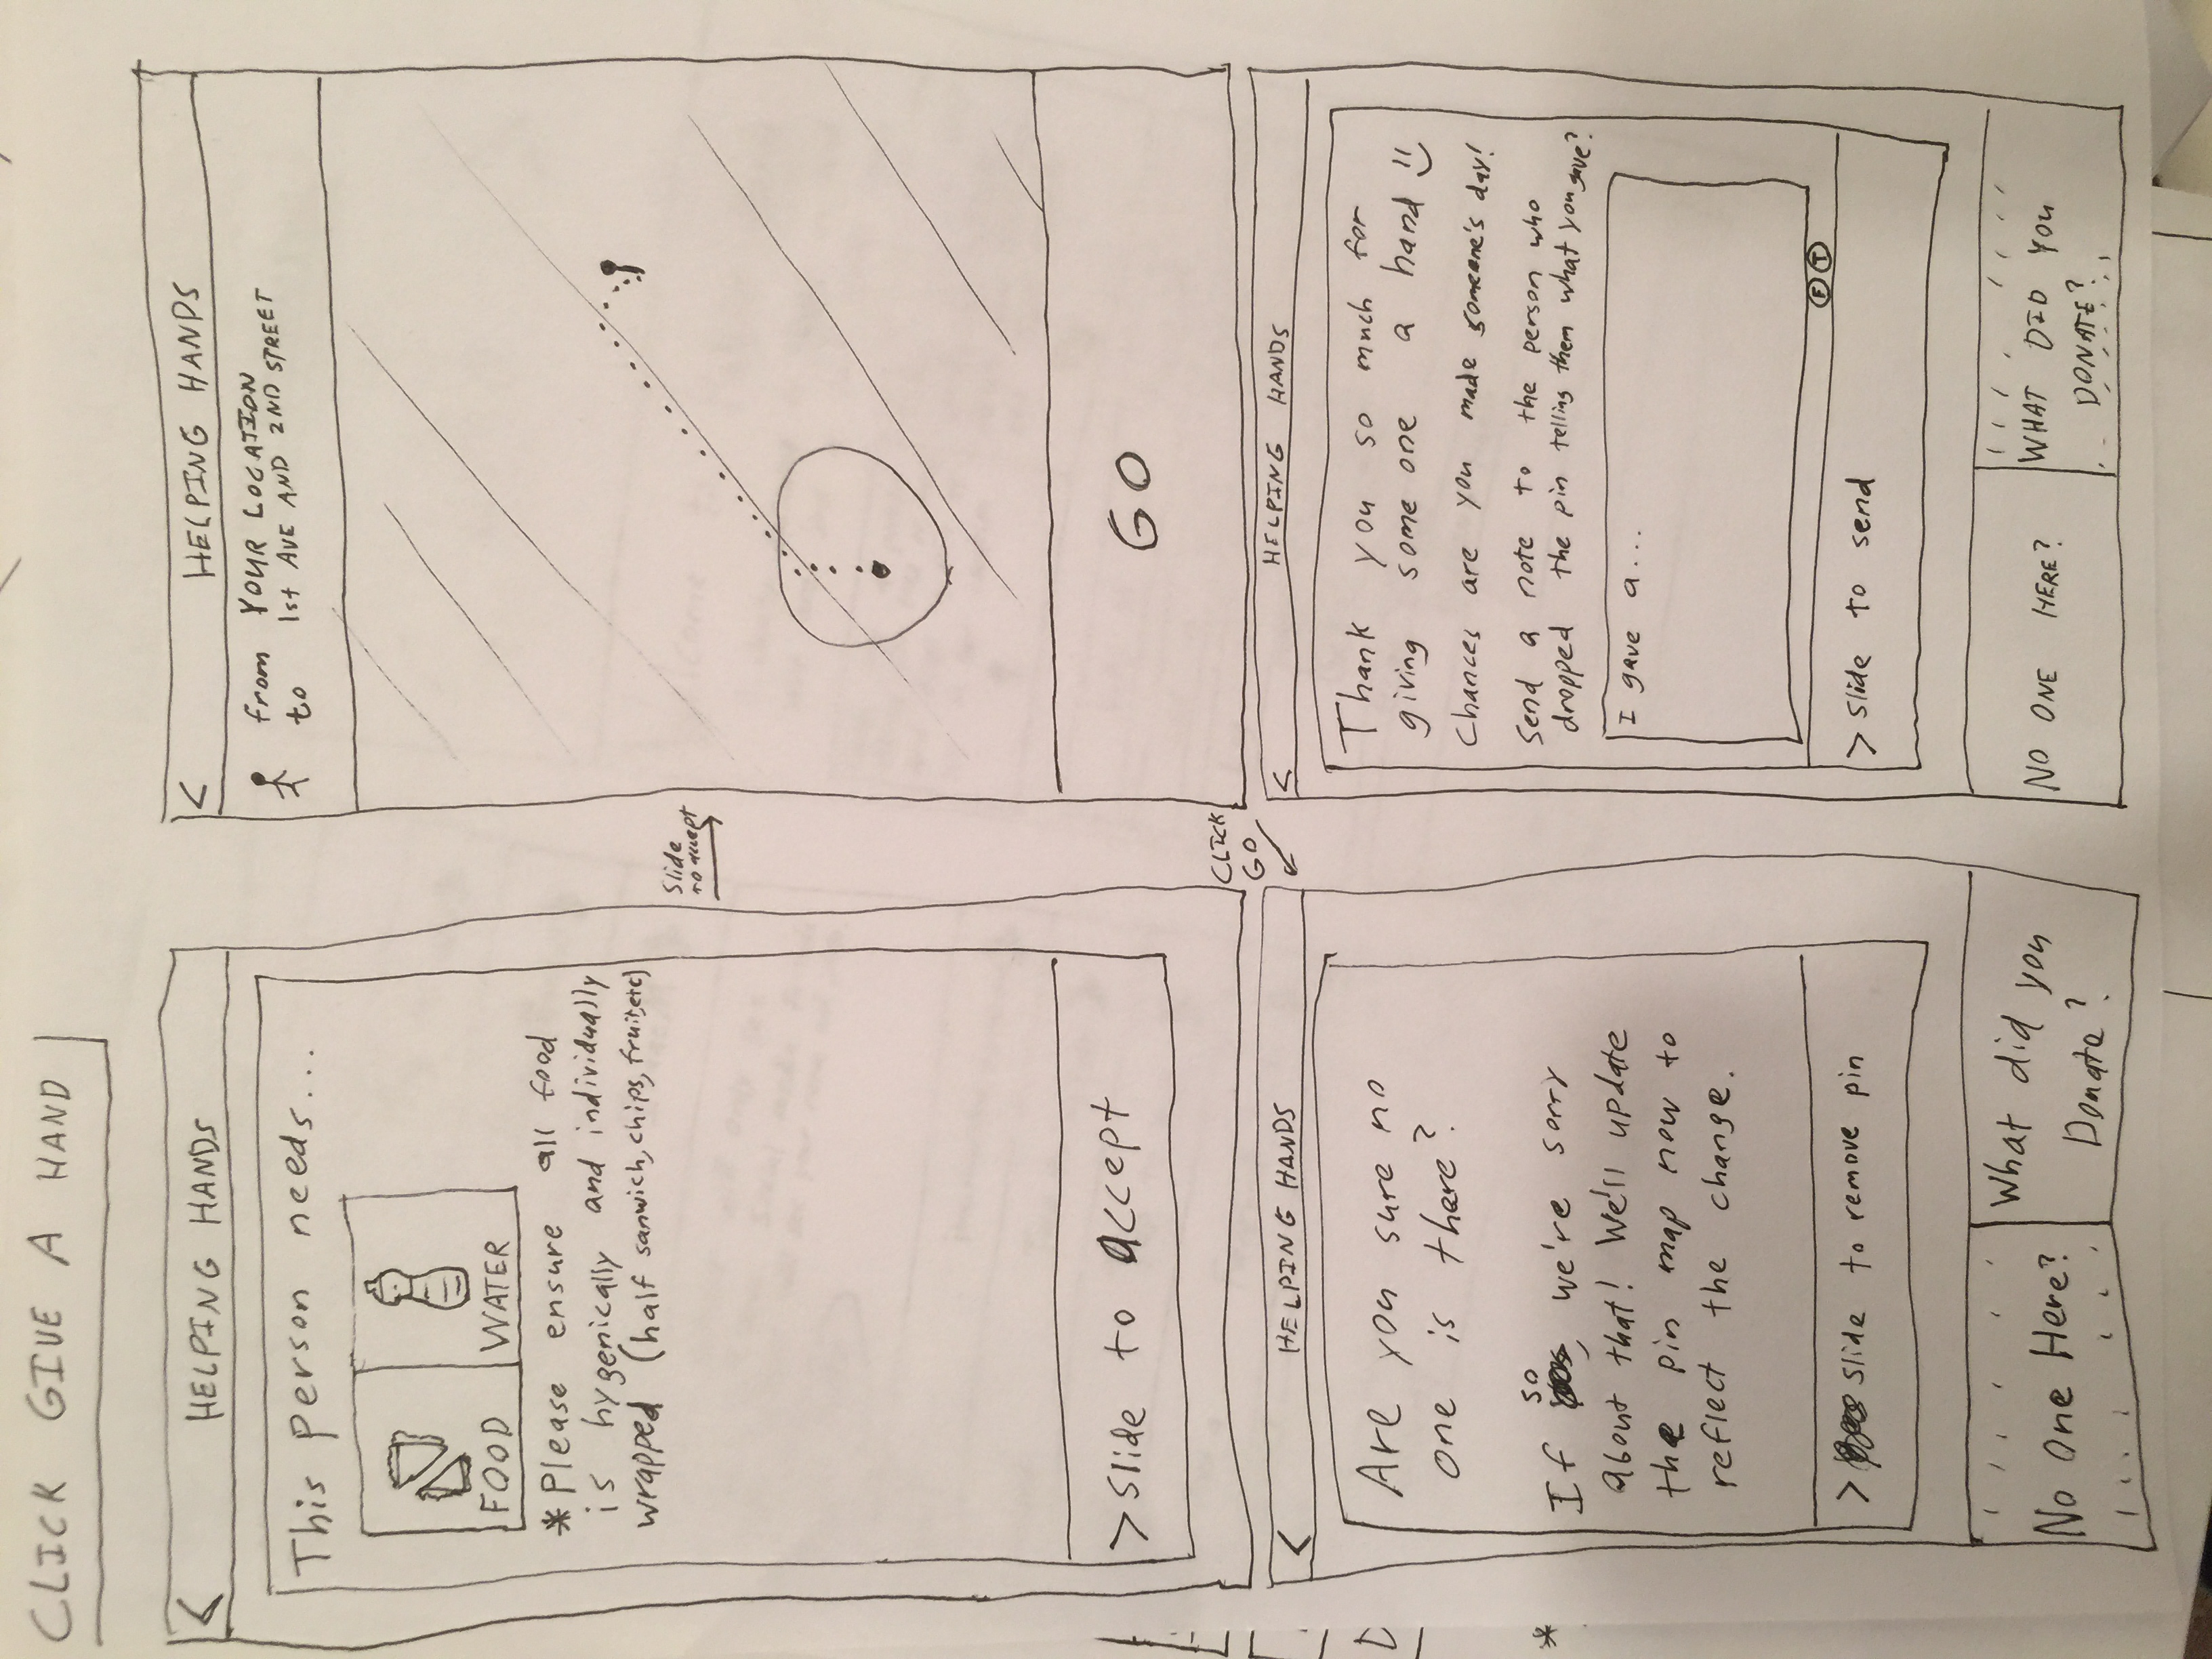 CLICK GIVE A HAND
< HELPING HANDS
This person needs...
FOOD WATER
*Please ensure all food
is hygenically and individually
wrapped (half sanwich, chips, fruit, etc)
> Slide to accept
Slide
to accept
< HELPING HANDS
from YOUR LOCATION
to 1st AVE AND 2ND STREET
GO
CLICK
GO
< HELPING HANDS
Are you sure no
one is there?
so
If, we're sorry
about that! We'll update
the pin map now to
reflect the change.
> slide to remove pin
No One Here?
What did you
Donate?
< HELPING HANDS
Thank you so much for
giving some one a hand
Chances are you made someone's day!
Send a note to the person who
dropped the pin telling them what you gave?
I gave a...
F T
> Slide to send
NO ONE HERE?
WHAT DID YOU
DONATE?
*